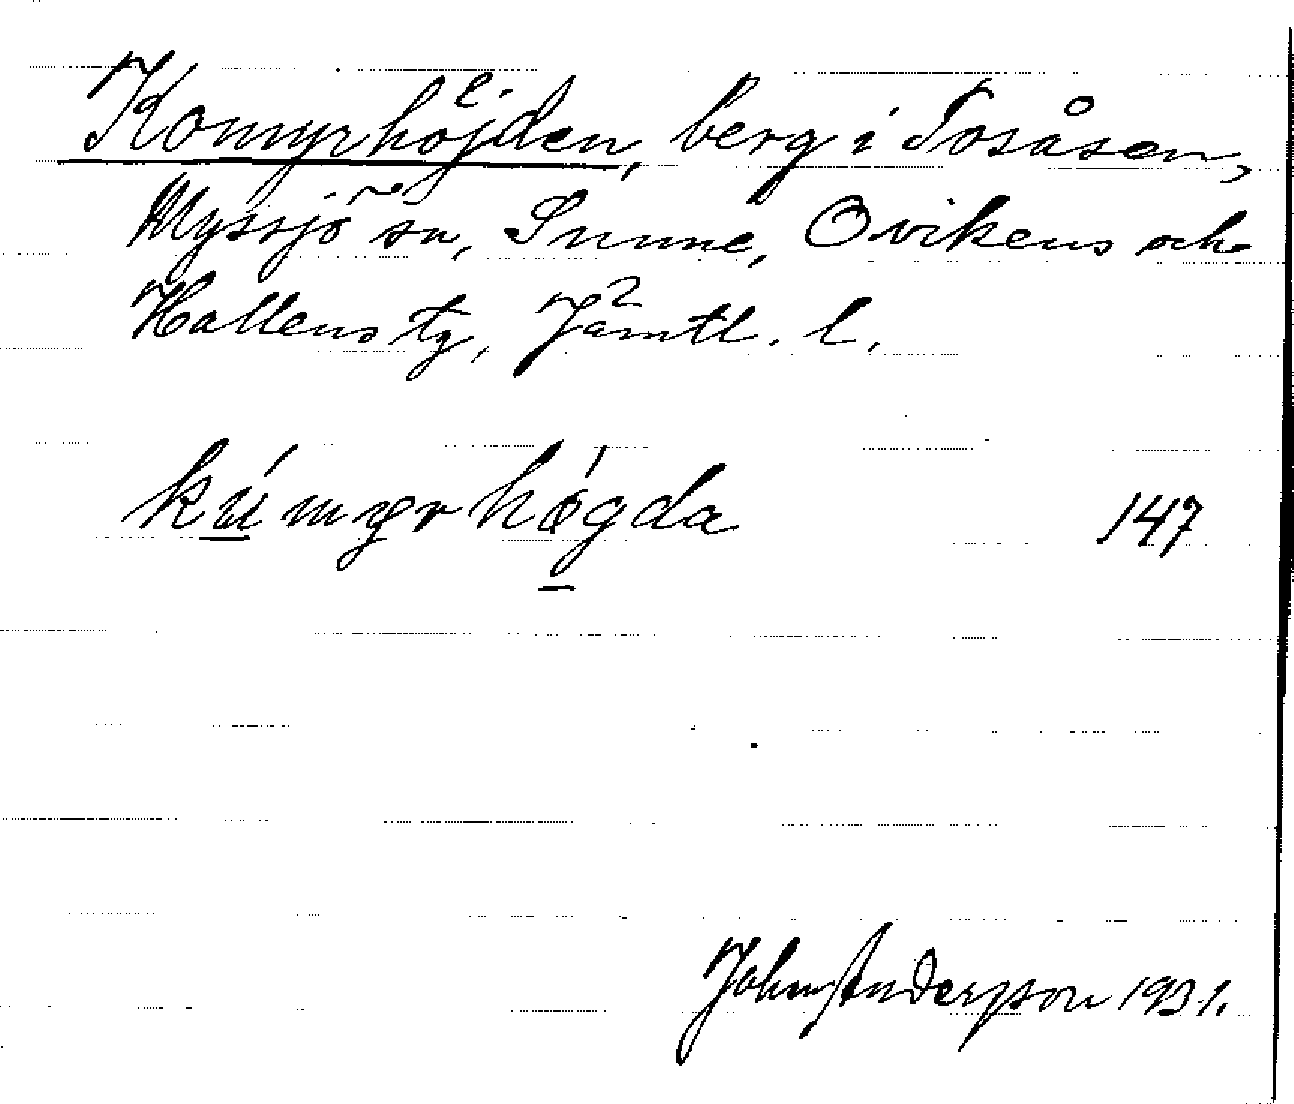 Komyrhöjden, berg i Tosåsen,
Myssjö sn, Sunne, Ovikens och
Hallens tg, Jämtl. l.
kúmyrhǿgda 147
John Andersson 1931.